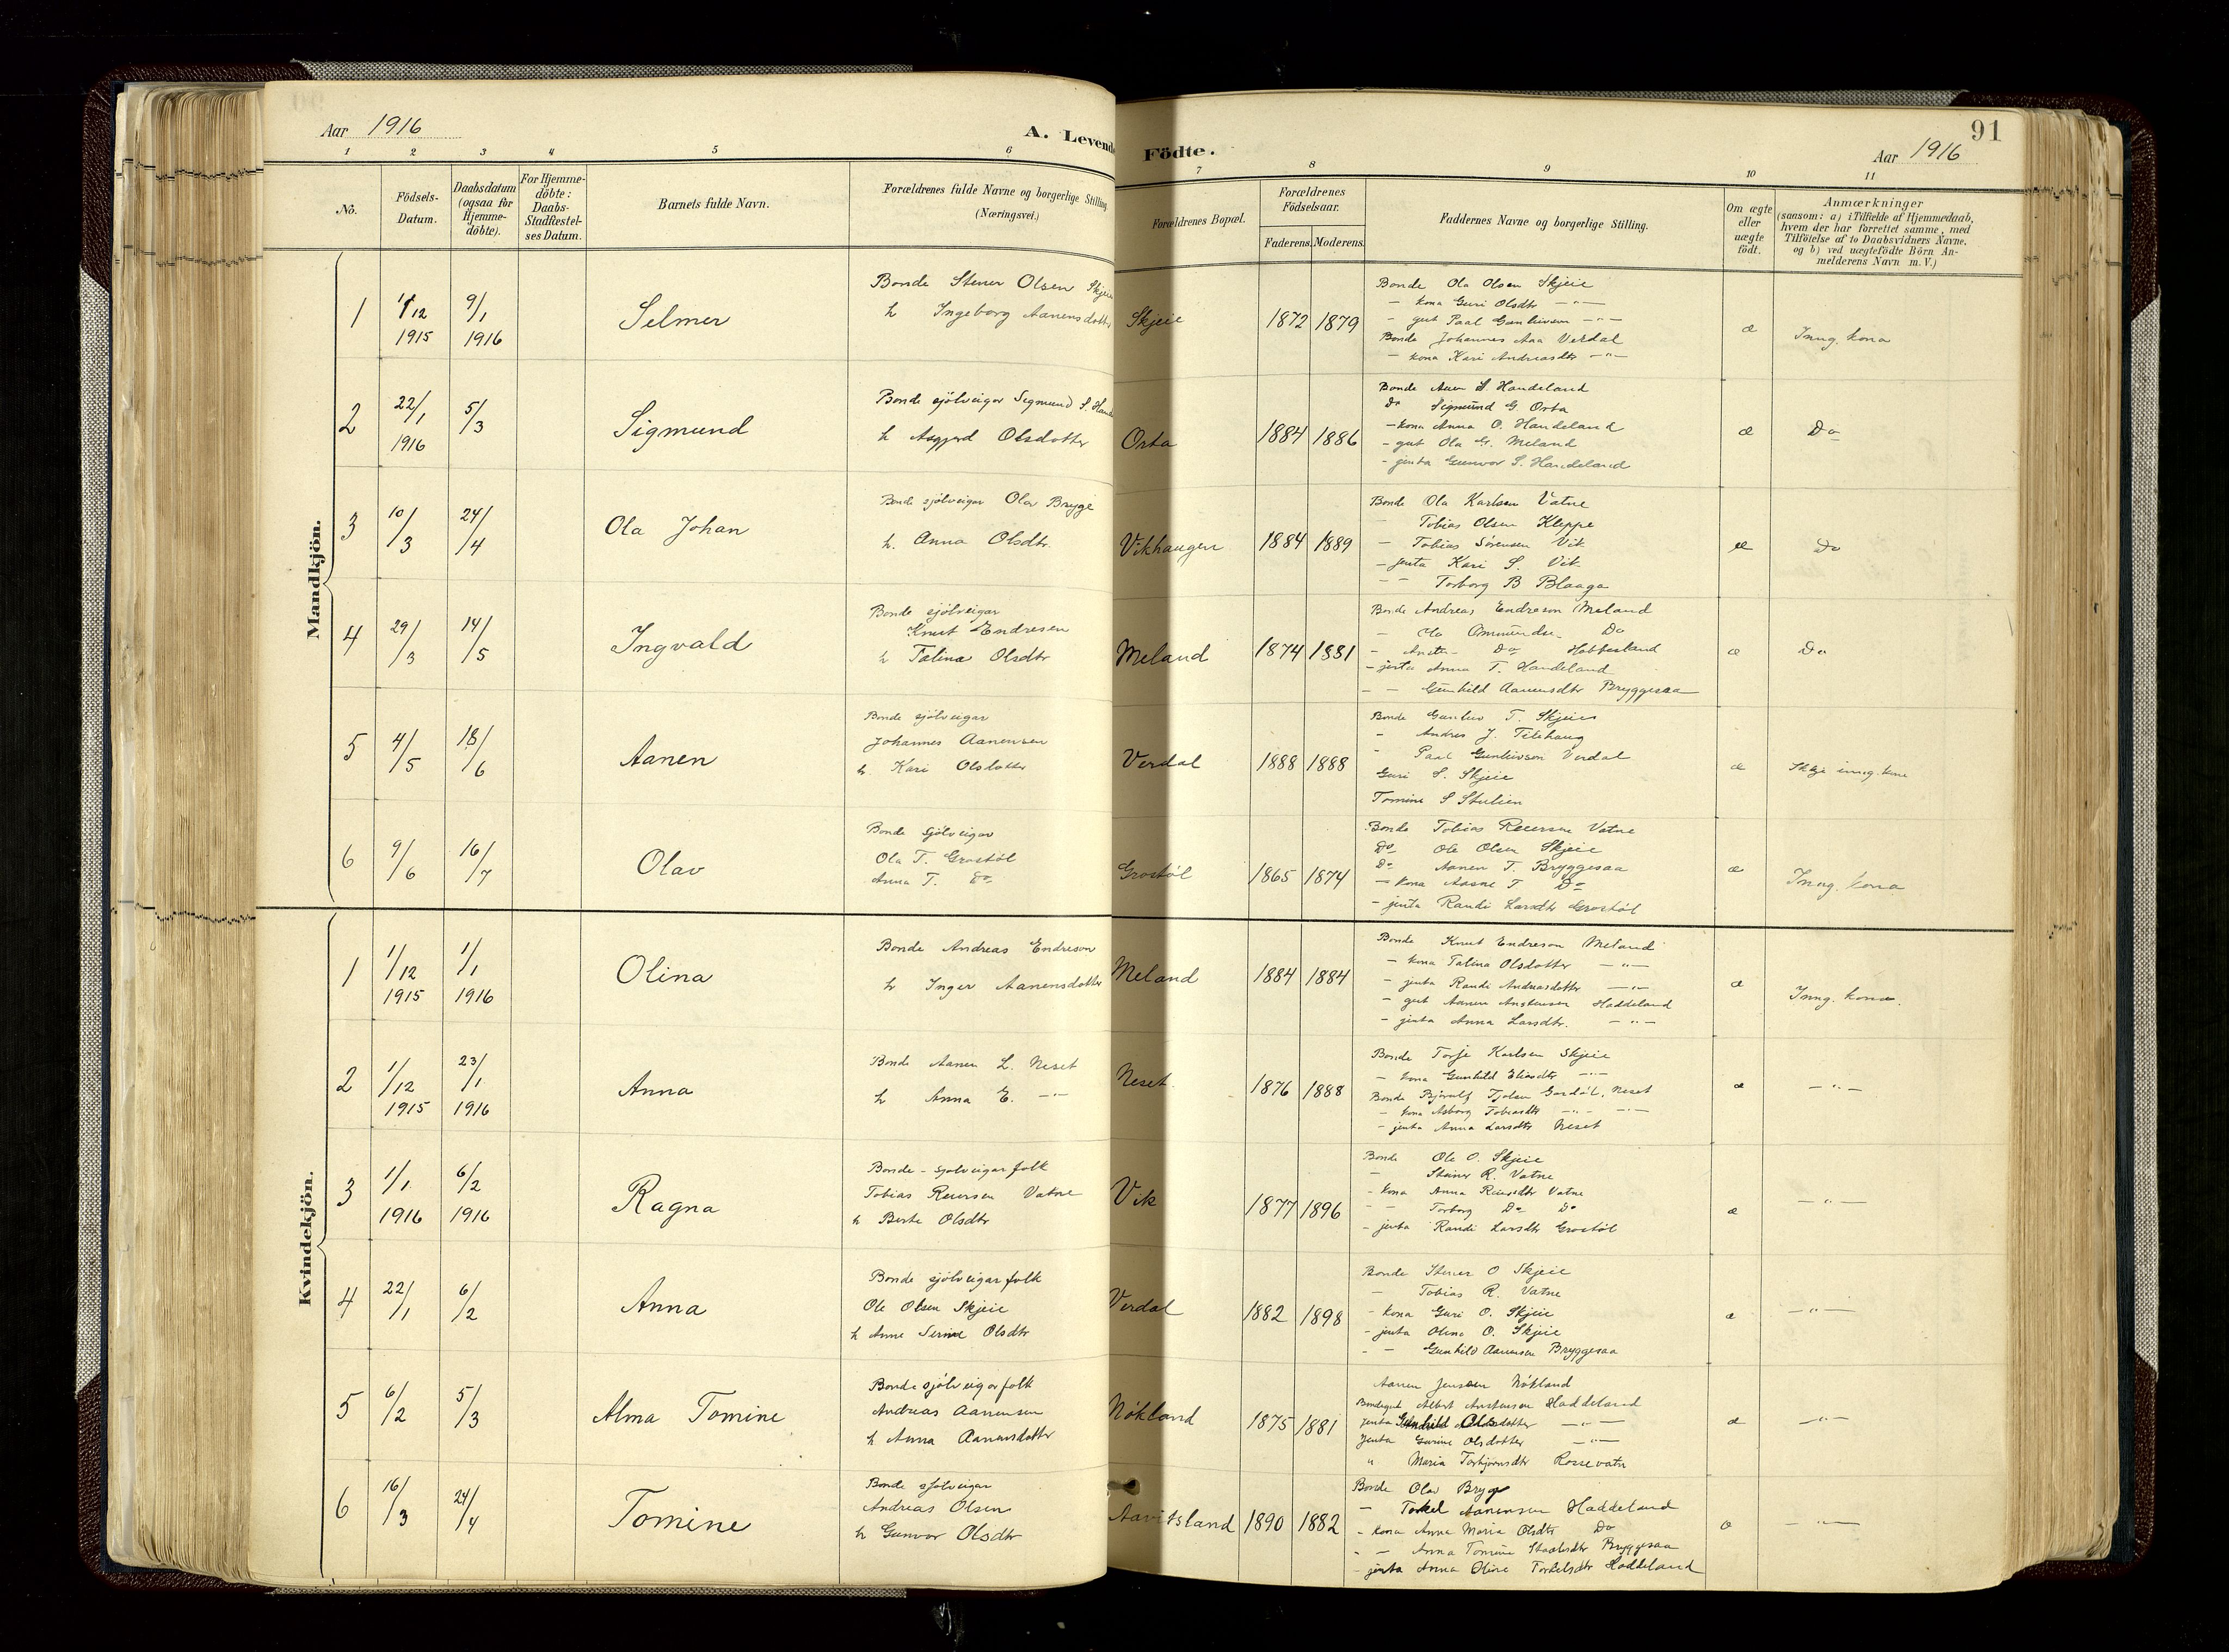 91
Aar 1916
A. Levende
Födte.
Aar 1916
1 2 3 4 5 6 7 8 9 10 11
No.
Födsels-
Datum.
Daabsdatum
(ogsaa for
Hjemme-
döbte).
For Hjemme-
döbte:
Daabs-
Stadfæstel-
ses Datum.
Barnets fulde Navn.
Forældrenes fulde Navne og borgerlige Stilling
(Næringsvei.)
Forældrenes Bopæl.
Forældrenes
Födselsaar.
Faderens. Moderens.
Faddernes Navne og borgerlige Stilling.
Om ægte
eller
uægte
födt.
Anmærkninger
(saasom: a) i Tilfælde af Hjemmedaab,
hvem der har forrettet samme, med
Tilföielse af to Daabsvidners Navne.
og b) ved uægtefödte Börn An-
melderens Navn m. V.)
Mandkjön.
1
1/12
1915
9/1
1916
Selmer
Bonde Stener Olsen Skjeie
h Ingeborg Aanensdotter
Skjeie
1872 1879
Bonde Ola Olsen Skjeie
- kona Guri Olsdtr - " -
- gut Paal Gunluvson - " -
Bonde Johannes Aaa Verdal
- kona Kari Andreasdtr - " -
æ
Inng. kona
2
22/1
1916
5/3
Sigmund
Bonde sjölveigar Sigmund S. Hand
h Asgjerd Olsdotter
Osta
1884 1886
Bonde Aanen S. Handeland
Do Sigmund G. Osta
- kona Anna O. Handeland
- gut Ola G. Meland
- jenta Gunvor S. Handeland
æ
Do
3
10/3
24/4
Ola Johan
Bonde sjölveigar Olav Brygge
h. Anna Olsdtr.
Vikhaugen
1884 1889
Bonde Ola Karlsen Vatne
- Tobias Olsen Kleppe
- Tobias Sörensen Vik
- jenta Kari S. Vik
- - Torborg B Blaaga
æ
Do
4
29/3
14/5
Ingvald
Bonde sjölveigar
Knut Endresen
h Talina Olsdtr
Meland
1874 1881
Bonde Andreas Endreson Meland
- Ola Do
- Do
- jenta Anna T. Handeland
- - Gunhild Aanensdtr Bryggesaa
æ
Do
5
4/5
18/6
Aanen
Bonde sjölveigar
Johannes Aanensen
h. Kari Olsdotter
Verdal
1888 1888
Bonde Gunluv T. Skjeie
- Andres J.
- Paal Gunluvson Verdal
Guri S. Skjeie
Tomine S
æ
inng. kona
6
9/6
16/7
Olav
Bonde sjölveigar
Ola T. Grostöl
Anna T. Do
Grostöl
1865 1874
Bonde Tobias Reiersen Vatne
Do Ole Olsen Skjeie
Do Aanen T. Bryggesaa
- kona Aasne T Do
- jenta Randi Larsdtr Grostöl
æ
Inng. kona
Kvindekjön.
1
1/12
1915
1/1
1916
Olina
Bonde Andreas Endreson
h Inger Aanensdotter
Meland
1884 1884
Bonde Knut Endreson Meland
- kona Talina Olsdotter - " -
- jenta Randi Andreasdotter - " -
- gut Aanen Anstensen Haddeland
- jenta Anna Larsdtr. - " -
æ
Inng. kona.
2
1/12
1915
23/1
1916
Anna
Bonde Aanen L. Neset
h Anna E. - " -
Neset
1876 1888
Bonde Torje Karlsen Skjeie
- kona Gunhild Eliasdtr - " -
Bonde Bjørulf Tjolsen Neset
- kona Asborg Tobiasdtr - " - - " -
- jenta Anna Larsdtr Neset
æ
- " -
3
1/1
1916
6/2
1916
Ragna
Bonde - sjölveigarfolk
Tobias Reiersen Vatne
h Berte Olsdtr
Vik
1877 1896
Bonde Ole O. Skjeie
- Steiner R. Vatne
- kona Anna Reiersdtr Vatne
- - Torborg Do Do
- jenta Randi Larsdtr Grostöl
æ
- " -
4
22/1
6/2
Anna
Bonde sjölveigarfolk
Ole Olsen Skjeie
h Anne Serine Olsdtr
Verdal
1882 1898
Bonde Stener O Skjeie
- Tobias R. Vatne
- kona Guri O. Skjeie
- jenta Olena O. Skjeie
- - Gunhild Aanensen Bryggesaa
æ
- " -
5
6/2
5/3
Alma Tomine
Bonde sjölveigarfolk
Andreas Aanensen
h Anna Aanensdotter
Nökland
1875 1881
Aanen Jensen Nökland
Bondegut Albert Anstensen Haddeland
jenta Gunhild Olsdotter - " -
Jenta Gurine Olsdotter - " -
" Maria Torbjörnsdtr Rossevatn
æ
- " -
6
16/3
24/4
Tomine
Bonde sjölveigar
Andreas Olsen
h Gunvor Olsdtr
Aavitsland
1890 1882
Bonde Olav Brygge
- Torkel Aanensen Haddeland
- kona Anna Maria Olsdtr Do
- - Anna Tomine Bryggesaa
- jenta Anna Oline Torkelsdtr Haddeland
æ
- " -